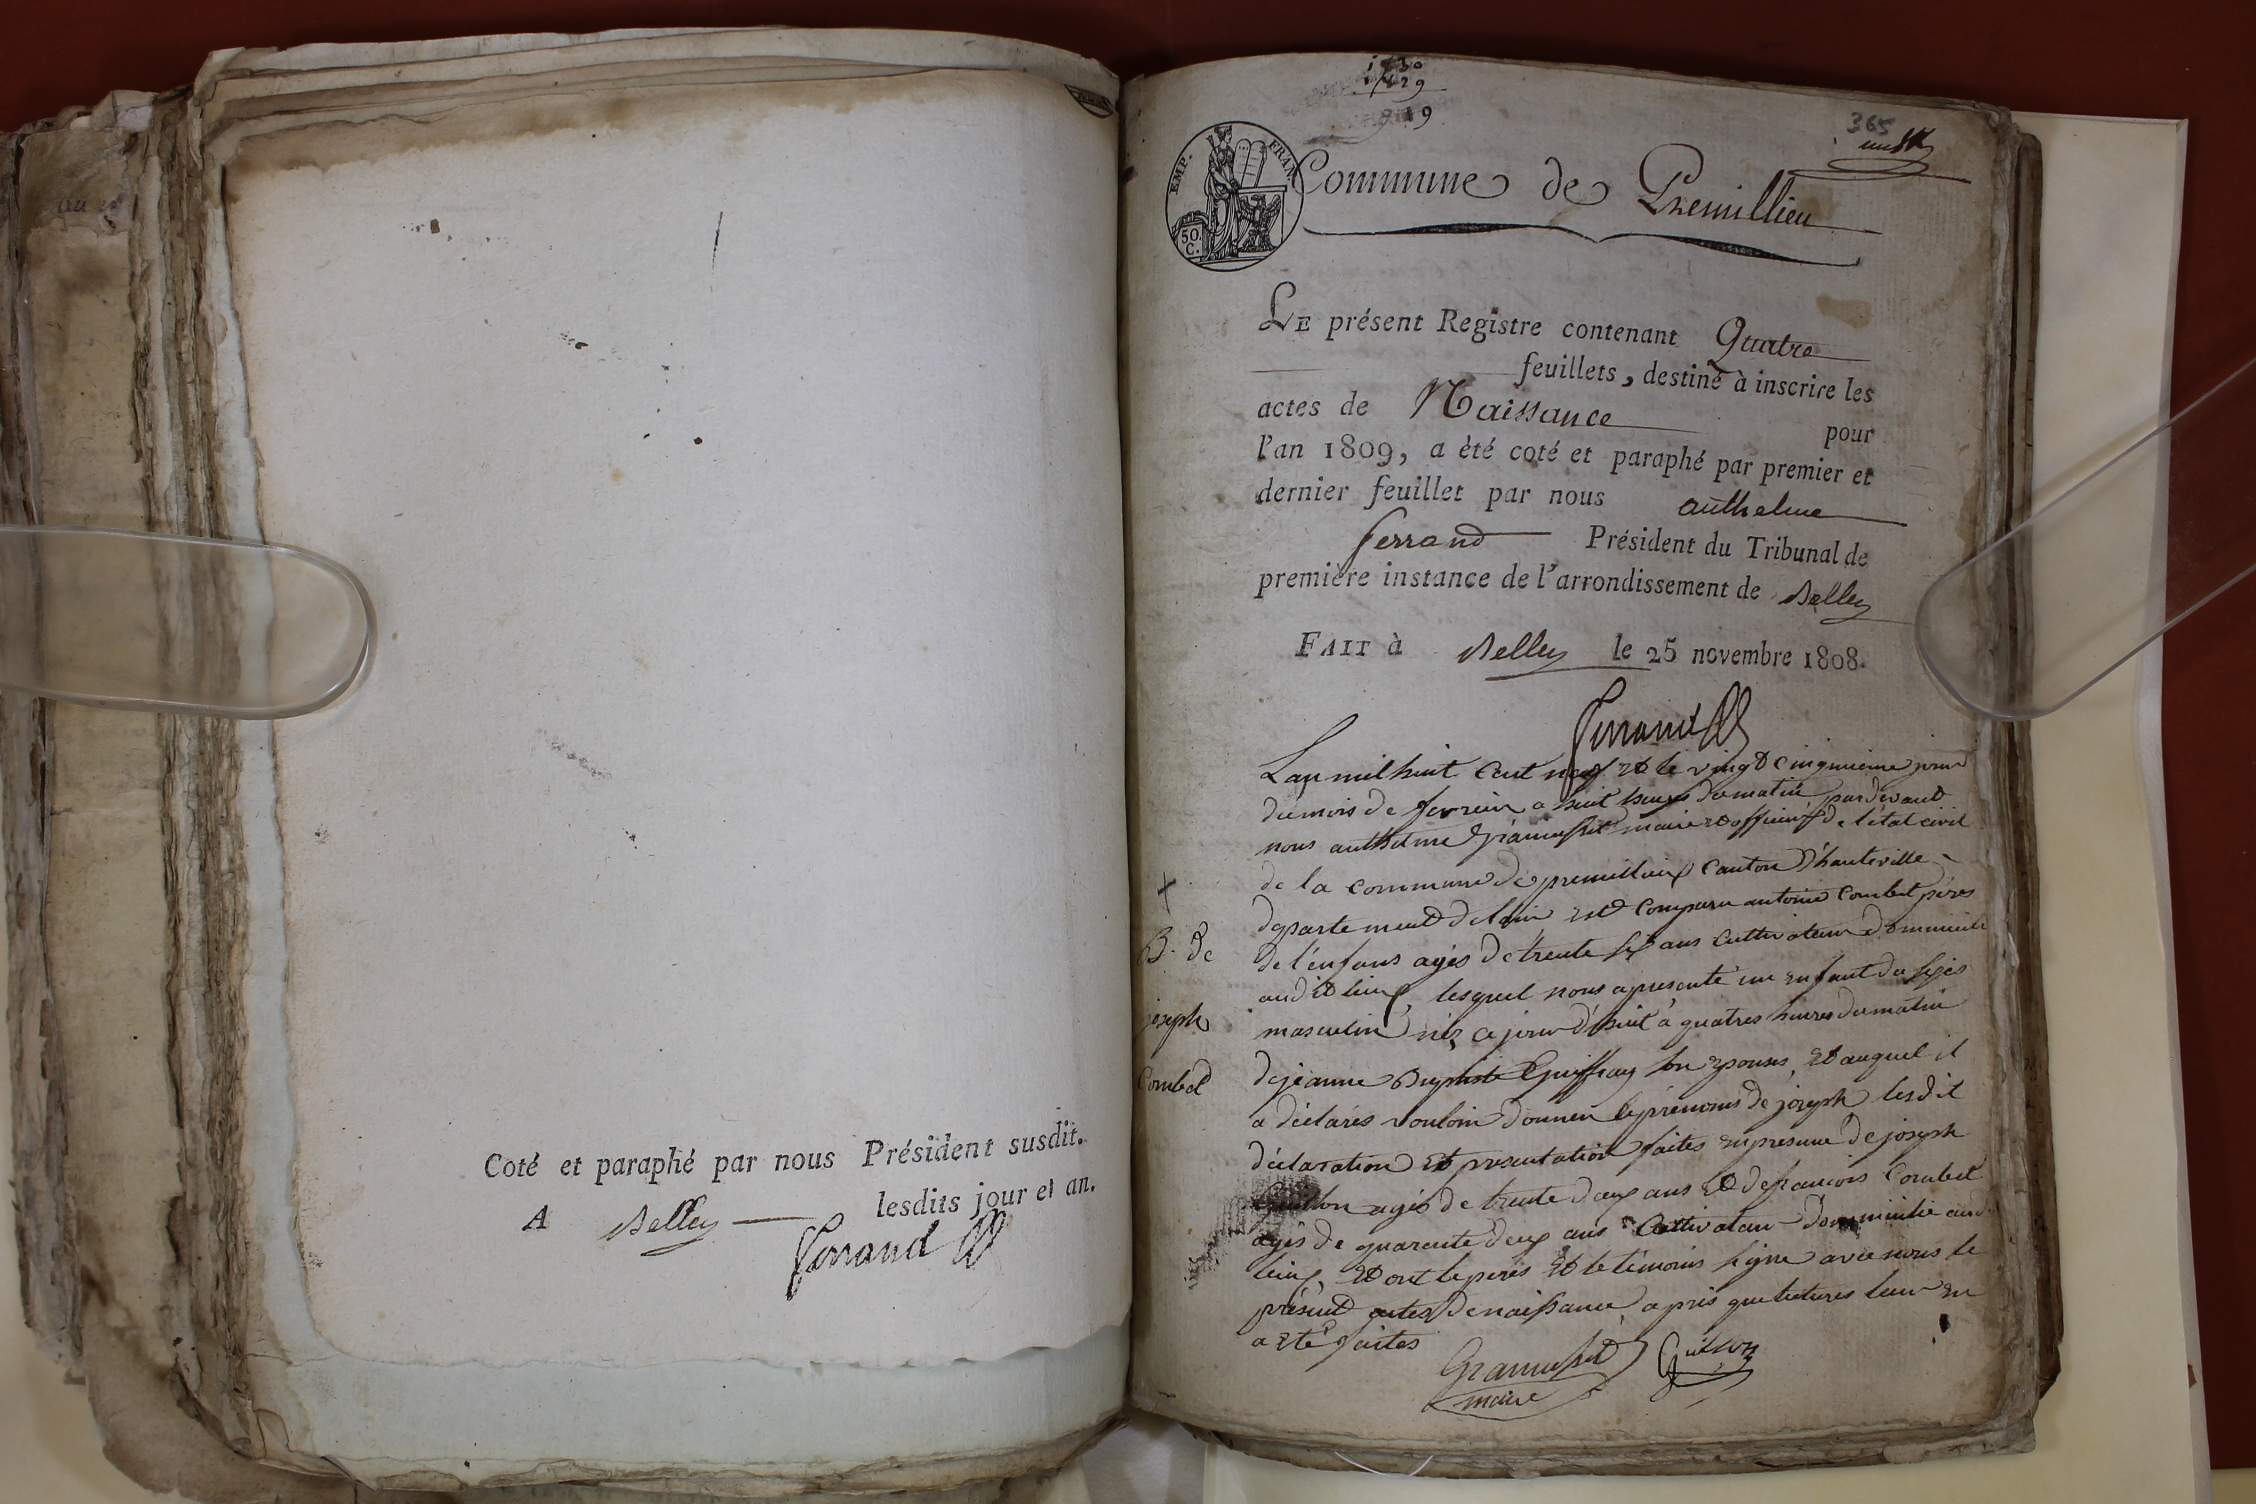 Coté et paraphé par nous Président susdit.
A Belley lesdits jour et an.
Ferrand
1730
1729
919
365
EMP. FRAN.
50. C.
Commune de Premillieu
LE présent Registre contenant Quatre
feuillets, destiné à inscrire les
actes de Naissance pour
l'an 1809, a été coté et paraphé par premier et
dernier feuillet par nous anthelme
ferrand Président du Tribunal de
première instance de l'arrondissement de Belley
FAIT à Belley le 25 novembre 1808.
Ferrand
L'an mil huit cent neuf et le vingt cinquieme jour
du mois de fevrier a huit heures du matin pardevant
nous anthelme maire et officier de l'état civil
de la commune de premillieu canton d'hauteville
departement de lain est comparu antoine combet peres
de l'enfans agés de trente six ans cultivateur domicilié
audit lieu, lesquel nous a presenté un enfant du sexes
masculin nés ce jour d'huit à quatres heures du matin
de jeanne son epouses, et auquel il
a déclarés vouloir donner le prénoms de joseph lesdit
déclaration et presentation faites en presence de joseph
Guillon agés de trente deux ans et de francois Combet
agés de quarante deux ans Cultivateur domicilié aud
lieux, et ont le peres et le témoins signe avec nous le
présent actes de naissance apris que lectures leur en
a eté faites
maire
Guillon
+
B. de
joseph
Combet